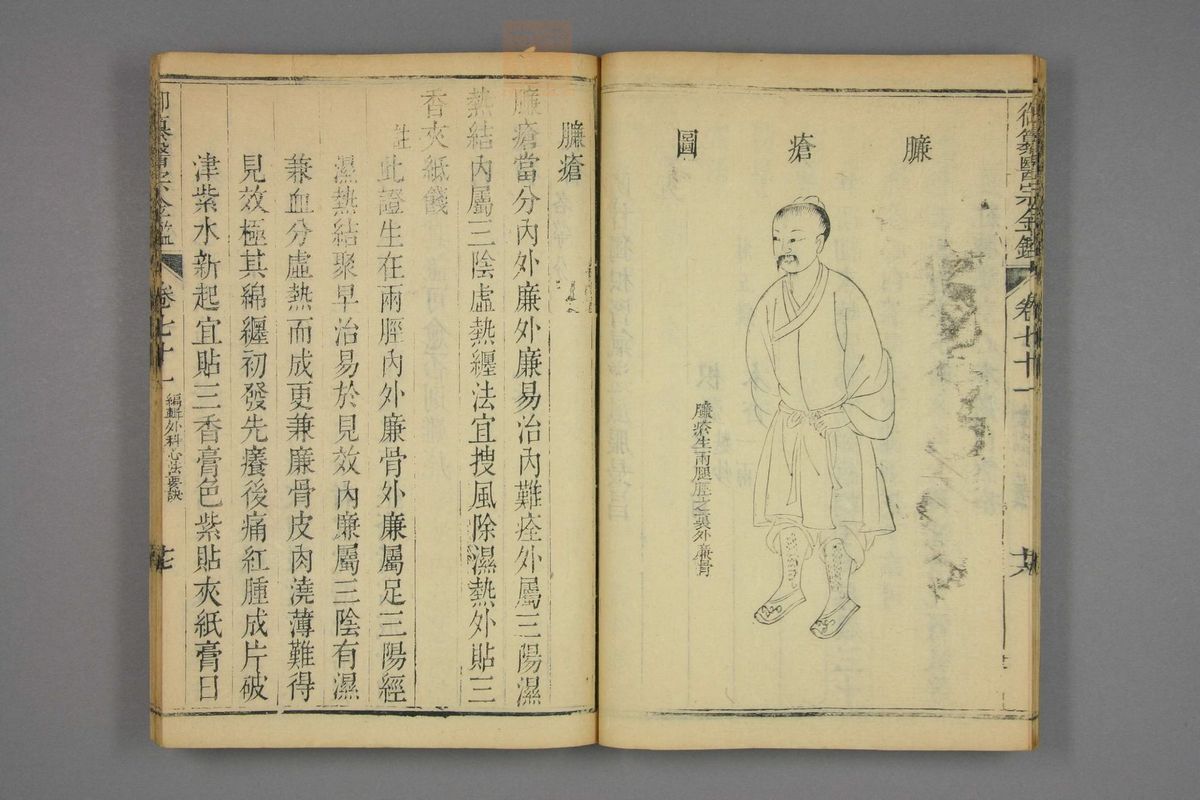 御纂醫宗金鑑
卷七十一
臁瘡圖
臁瘡生兩腿脛之裏外廉骨
臁瘡
臁瘡當分內外廉外廉易治內難痊外屬三陽濕
熱結內屬三陰虛熱纏法宜搜風除濕熱外貼三
香夾紙餞
註
此證生在兩脛內外廉骨外廉屬足三陽經
濕熱結聚早治易於見效內廉屬三陰有濕
兼血分虛熱而成更兼廉骨皮肉澆薄難得
見效極其綿纏初發先癢後痛紅腫成片破
津紫水新起宜貼三香膏色紫貼夾紙膏日
御纂醫宗金鑑
卷七十一
編輯外科心法要訣